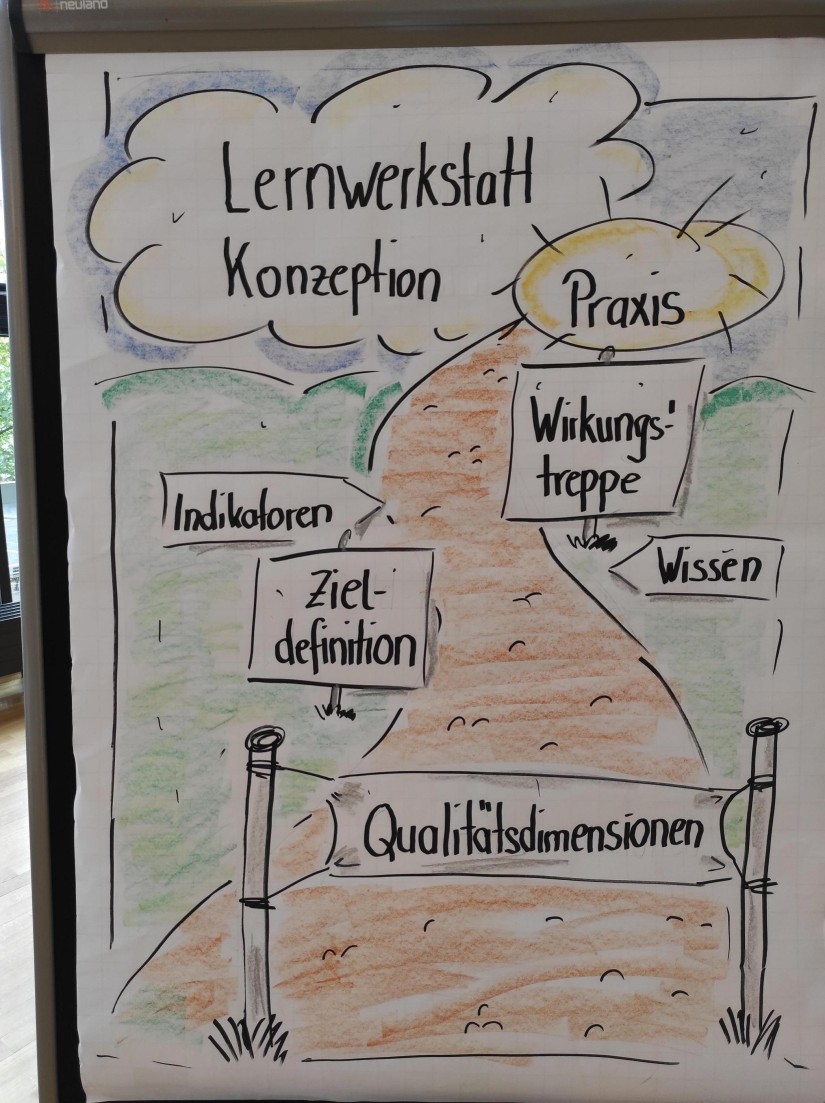 neuland
Lernwerkstatt
Konzeption
Praxis
Wirkungs-
treppe
Indikatoren
Wissen
Ziel-
definition
Qualitätsdimensionen